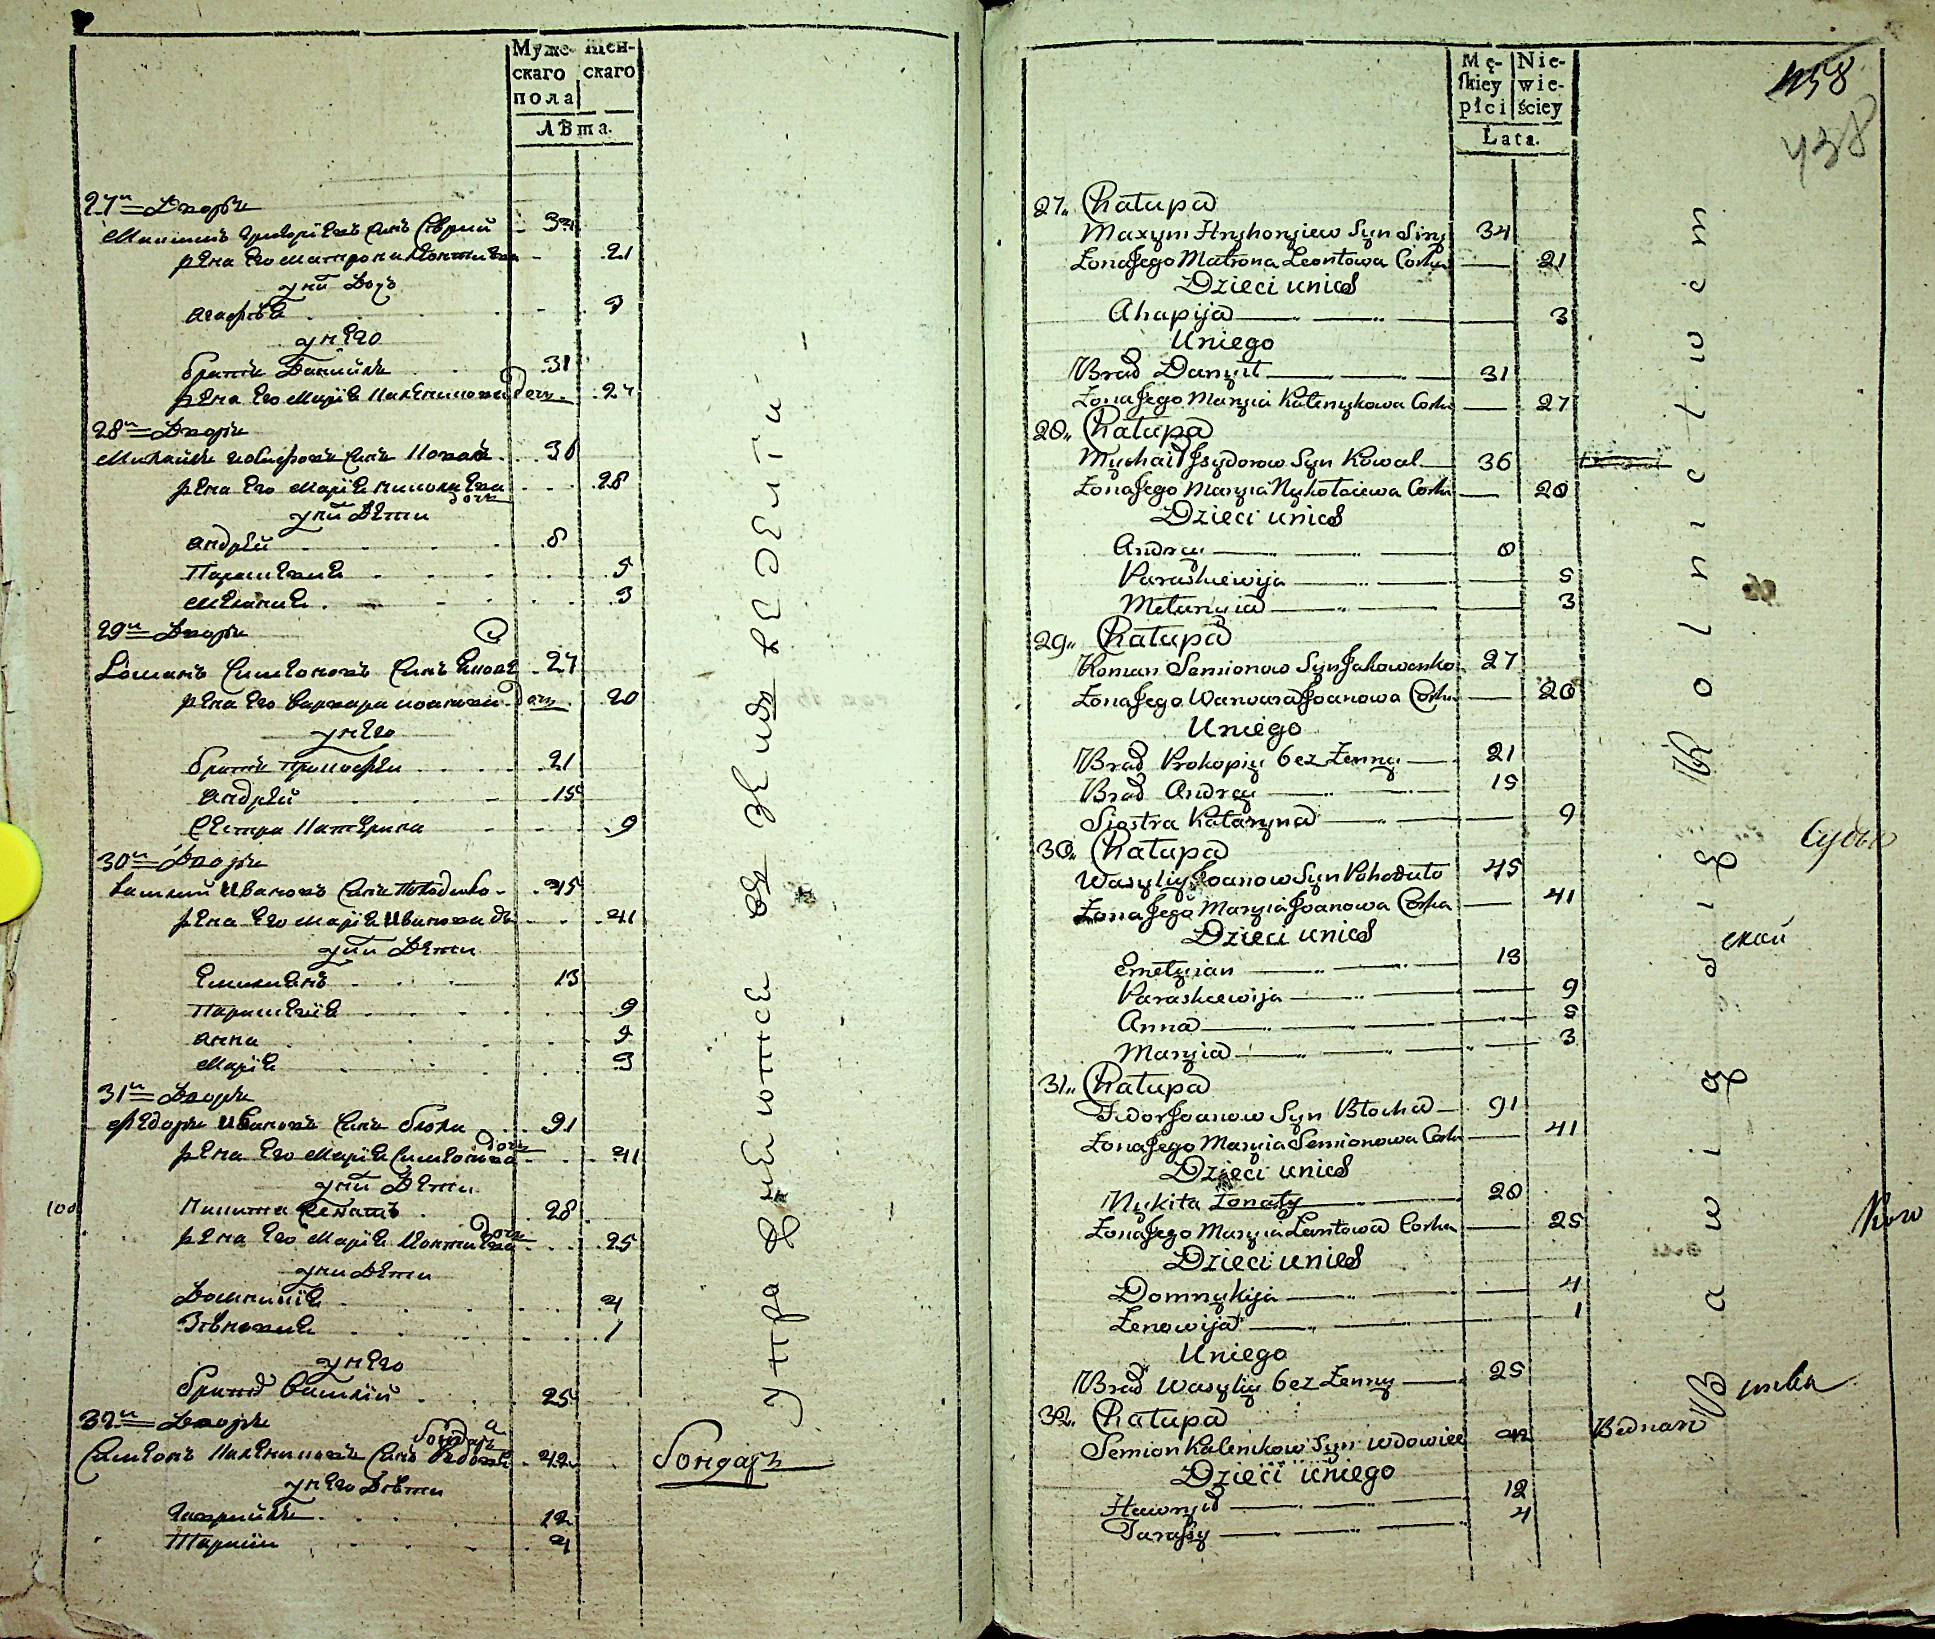 Муже- жен-
скаго скаго
пола
Лѣта.
27й Дворъ
Максимъ Григорїевъ Синъ Сѣрий 34
жена Его Матрона Леонтиева 21
у них Дочъ
Агафїѧ 3
у него
братъ Данийлъ 31
жена Его Марїѧ Каленикова Дочъ 27
28й Дворъ
Михайлъ Исидоровъ Синъ Коваль 36
жена Его Марїѧ Николаева дочъ 28
у них Дети
Андрей 8
Параскевия 5
Мелания 3
29й Дворъ
Романъ Симеоновъ Синъ 27
жена Его Варвара Иоанова Дочъ 20
у него
братъ Прокофей 21
Андрей 15
Сестра Катерина 9
30й Дворъ
Василий Ивановъ Синъ Походило 45
жена Его Марїѧ Иванова до 41
у них Дети
Емилианъ 13
Параскевїѧ 9
Анна 5
Марїѧ 3
31й Дворъ
Федоръ Ивановъ Синъ Блоха 91
жена Его Марїѧ Симеонова дочъ 41
у них Дети
100
Никита 28
жена Его Марїѧ Леонтиева Дочъ 25
у них Дети
Домникїѧ 4
Зѣновия 1
у него
братъ Василїй 25
32й Дворъ
Симеонъ Калениковъ Синъ Вдовец Бондаръ 42
у него Дѣти
Гаврийлъ 12
Тарасий 4
Бондаръ
управляются въ земледелги
Mę- Nie-
skiey wie-
płci ściey
Lata.
458
438
27. Chałupa
Maxym Hryhoryiew Syn Siry 34
Żona Jego Matrona Leontowa Corka 21
Dzieci unich
Ahapija 3
Uniego
Brad Danyił 31
Żona Jego Maryia Kalenykowa Corka 27
28. Chałupa
Mychaił Isydorow Syn Kowal 36
Żona Jego Maryia Nykołaiewa Corka 28
Dzieci unich
Andrey 8
Paraskiewija 5
Mełanyia 3
29. Chałupa
Roman Semionow Syn Jakowenko 27
Żona Jego Warwara Joanowa Corka 20
Uniego
Brad Prokopiy bez Żenny 21
Brad Andrey 15
Siostra Kataryna 9
30. Chałupa
Wasyliy Joanow Syn Pohodało 45
Żona Jego Maryia Joanowa Corka 41
Dzieci unich
Emełyian 13
Paraskiewija 9
Anna 5
Maryia 3
31. Chałupa
Fedor Joanow Syn Błocha 91
Żona Jego Maryia Semionowa Corka 41
Dzieci unich
Nykita Żonaty 28
Żona Jego Maryia Leontowa Corka 25
Dzieci unich
Domnykija 4
Zenowija 1
Uniego
Brad Wasyliy bez Żenny 25
32. Chałupa
Semion Kalenikow Syn wdowiec 42
Dzieci uniego
Hawryił 12
Tarasiy 4
Bednarz
Bawią się Rolnictwem